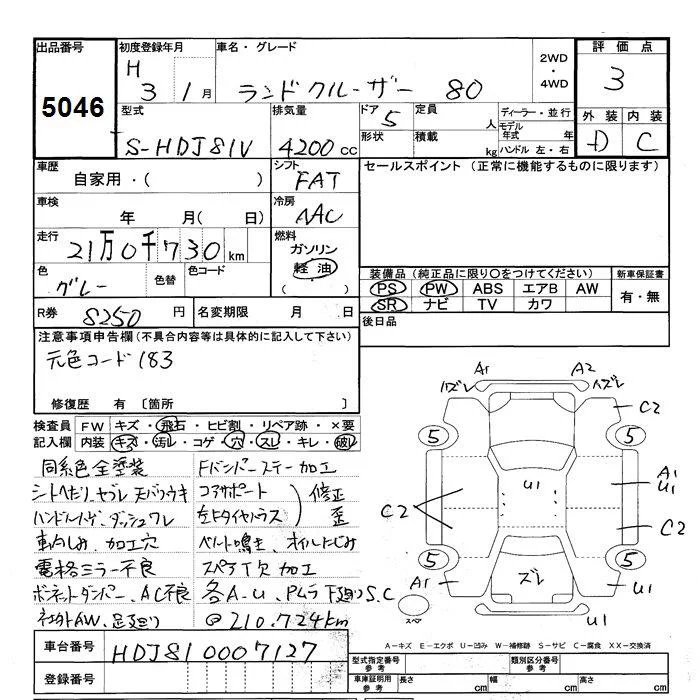 出品番号 初度登録年月 車名・グレード 2WD・4WD 評価点
5046 H 3 1月 ランドクルーザー 80 3
型式 排気量 ドア 5 定員 人 ディーラー・並行 外装 内装
S-HDJ81V 4200cc 形状 積載 kg モデル年式 年 ハンドル 左・右 D C
車歴 自家用・( ) シフト FAT セールスポイント (正常に機能するものに限ります)
車検 年 月( 日) 冷房 AAC
走行 21万0千730km 燃料 ガソリン 軽油 ( )
色 グレー 色替 色コード 装備品(純正品に限り○をつけてください) 新車保証書
PS PW ABS エアB AW 有・無
SR ナビ TV カワ
R券 8250円 名変期限 月 日 後日品
注意事項申告欄(不具合内容等は具体的に記入して下さい)
元色コード183
修復歴 有 〔箇所 〕
検査員 FW キズ・飛石・ヒビ割・リペア跡・×要
記入欄 内装 キズ・汚レ・コゲ・穴・スレ・キレ・破レ
同系色全塗装 Fバンパーステー加工
シートヘタリ、ヤブレ 天バリウキ コアサポート 修正
ハンドルハゲ、ダッシュワレ 左Fタイヤハウス 歪
車内しみ、加工穴 ベルト鳴き、オイルにじみ
電格ミラー不良 スペアT穴 加工
ボーネットダンパー、AC不良 各A-U、PムラF廻りS.C
社外AW、足廻り @210.724km
A1 A2 ズレ ズレ
C2 5 5 A1 U1
C2 U1 C2
5 5 A1 ズレ U1
スペア U1
A-キズ E-エクボ U-凹み W-補修跡 S-サビ C-腐食 XX-交換済
車台番号 HDJ81 0007127
登録番号
型式指定番号 参考 類別区分番号 参考
車庫証明用 参考 長さ cm 幅 cm 高さ cm